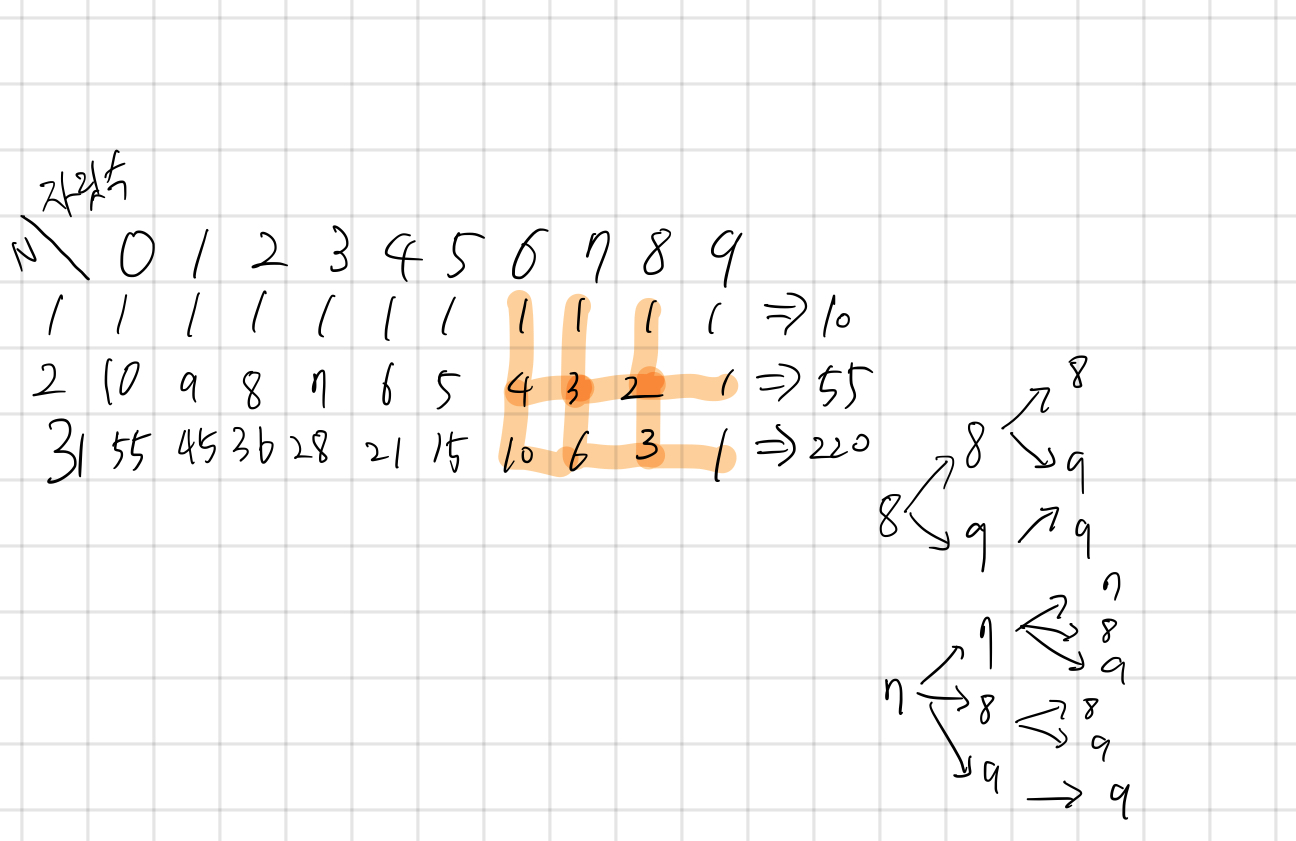 자릿수
N 0 1 2 3 4 5 6 7 8 9
1 1 1 1 1 1 1 1 1 1 1 ⇒ 10
2 10 9 8 7 6 5 4 3 2 1 ⇒ 55
3 55 45 36 28 21 15 10 6 3 1 ⇒ 220
8
8
9
8
9 → 9
7
7
8
9
7
8
8
9
9 → 9